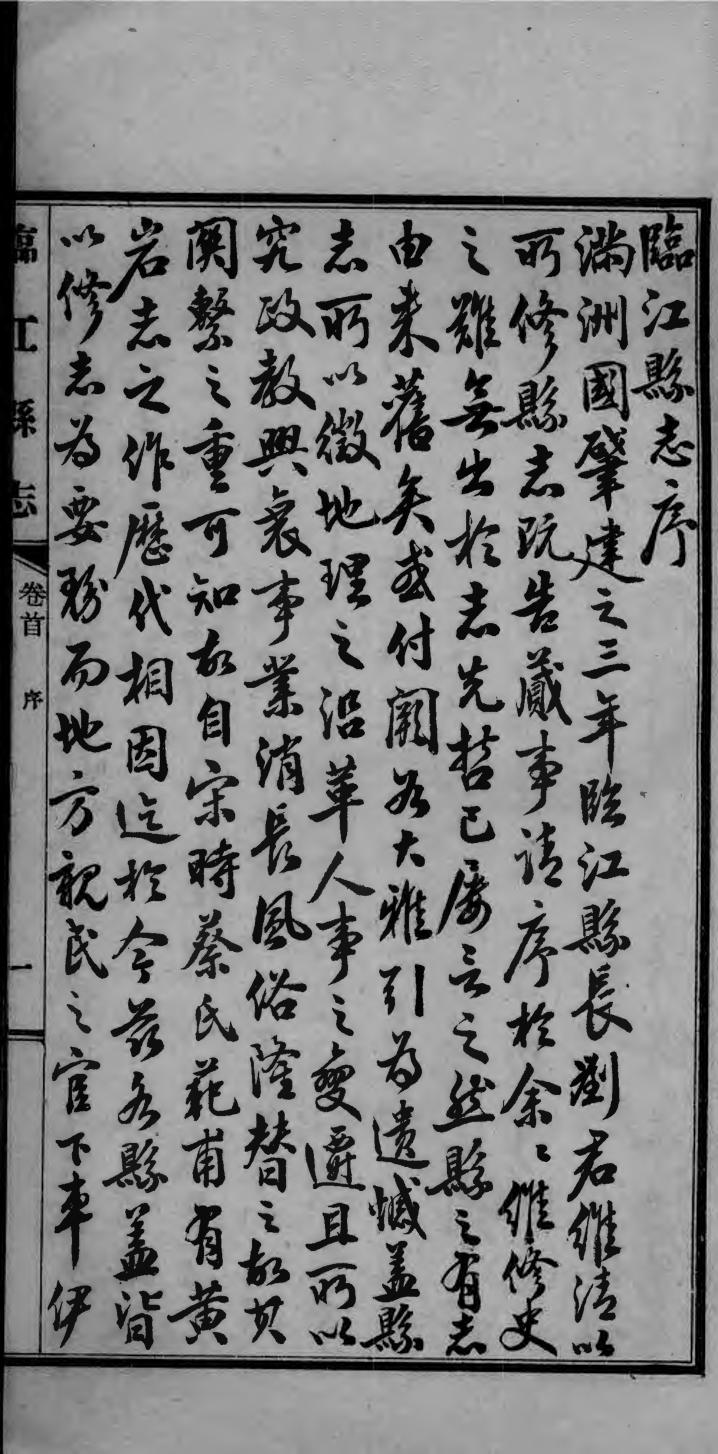 臨江縣志序
滿洲國肇建之三年臨江縣長劉君維清以
所修縣志既告蕆事請序於余〻維修史
之難無出於志先哲已屢言之然縣之有志
由來舊矣或付闕如大雅引為遺憾蓋縣
志所以徵地理之沿革人事之變遷且所以
究政教興衰事業消長風俗隆替之故其
関繫之重可知故自宋時蔡氏範甫有黃
岩志之作歷代相因迄於今茲各縣蓋皆
以修志為要務而地方親民之官下車伊
臨江縣志
卷首
序
一